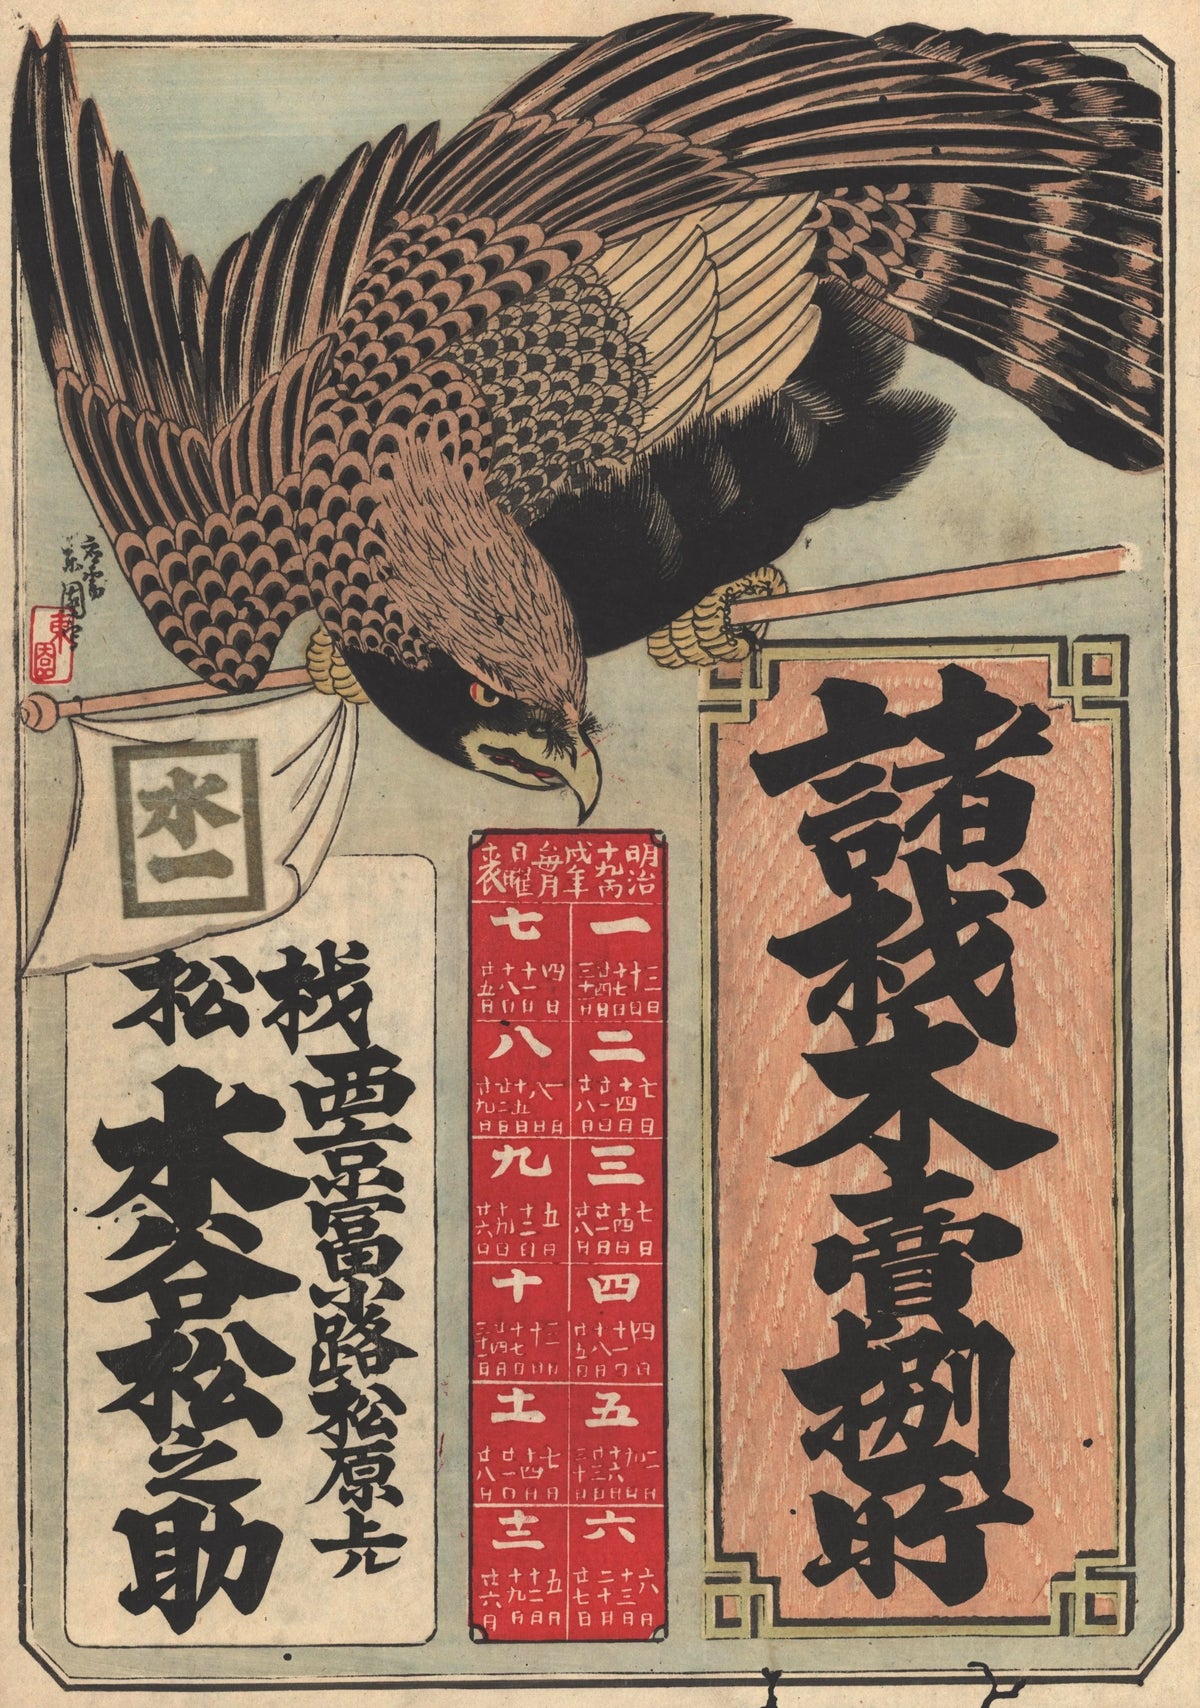 諸材木賣捌所
明治
十九丙
戌年
毎月
日曜
表
一
三日
十日
十七日
廿四日
三十一日
二
七日
十四日
廿一日
廿八日
三
七日
十四日
廿一日
廿八日
四
四日
十一日
十八日
廿五日
五
二日
九日
十六日
廿三日
三十日
六
六日
十三日
二十日
廿七日
七
四日
十一日
十八日
廿五日
八
一日
八日
十五日
廿二日
廿九日
九
五日
十二日
十九日
廿六日
十
三日
十日
十七日
廿四日
三十一日
十一
七日
十四日
廿一日
廿八日
十二
五日
十二日
十九日
廿六日
水一
材松
西京富小路松原上ル
水谷松之助
應需
東園